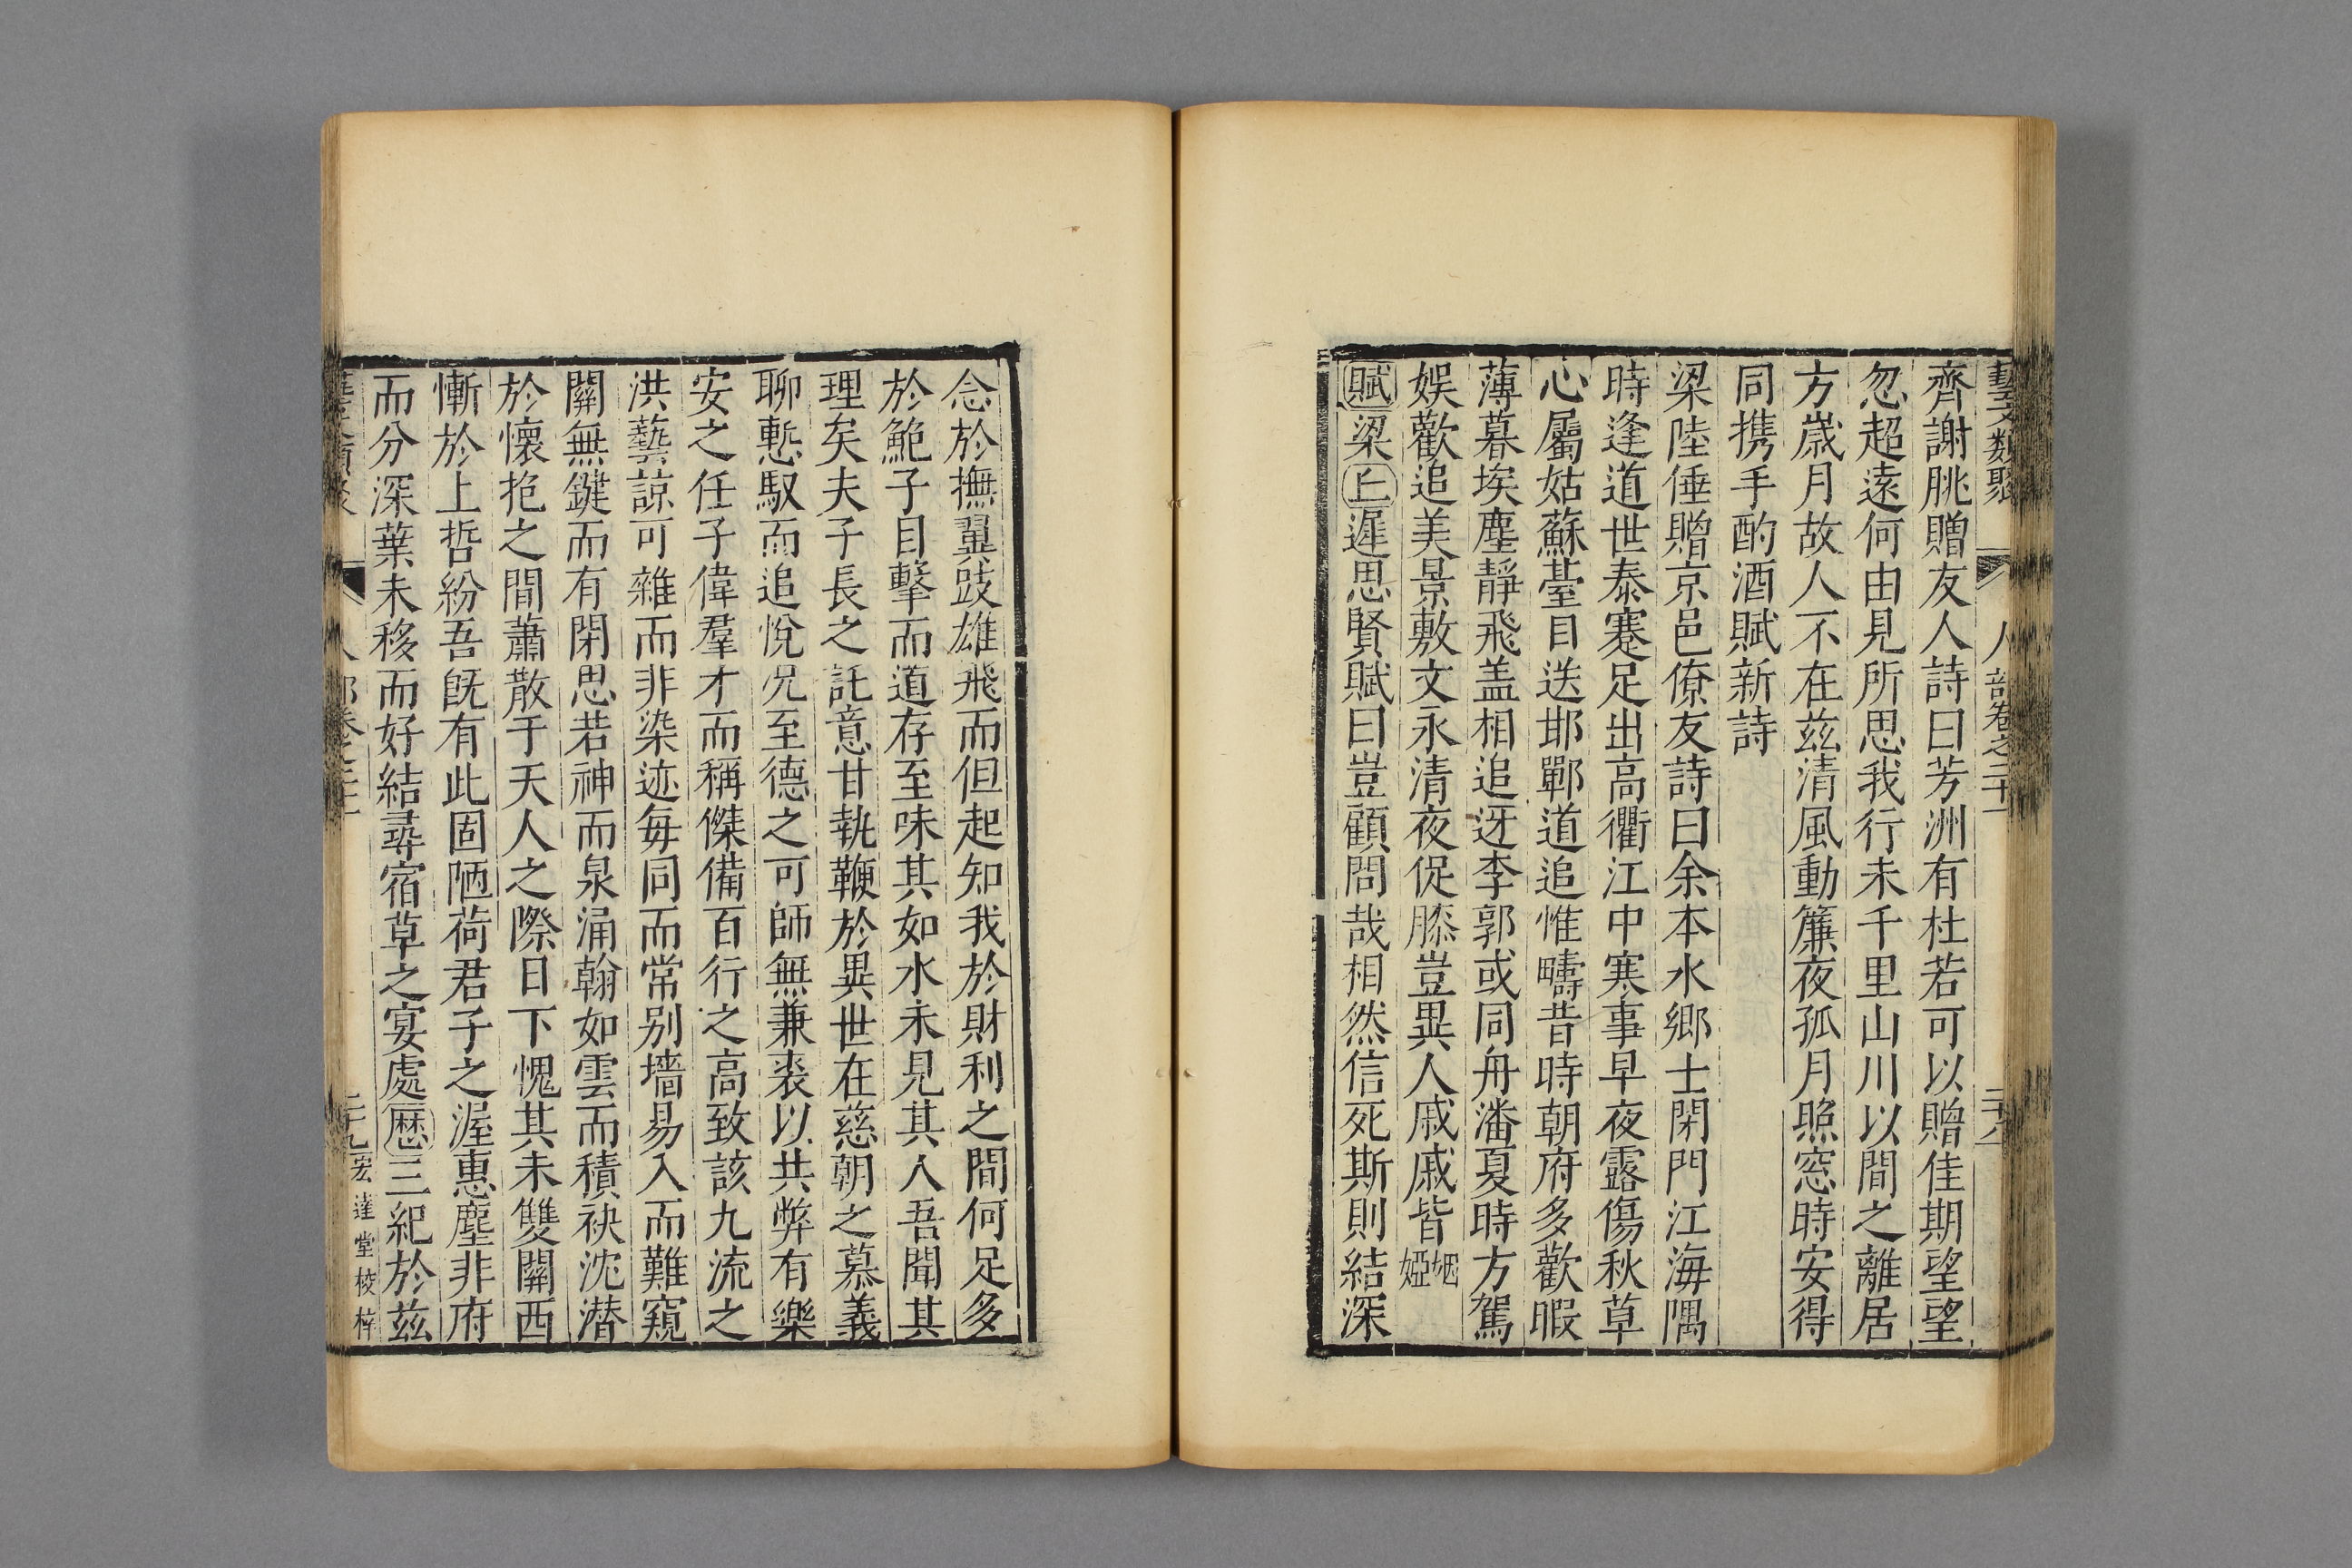 藝文類聚 人部卷之二十一 二十八
齊謝朓贈友人詩曰芳洲有杜若可以贈佳期望望
忽超遠何由見所思我行未千里山川以間之離居
方歲月故人不在茲清風動簾夜孤月照窓時安得
同携手酌酒賦新詩
梁陸倕贈京邑僚友詩曰余本水鄉士閑門江海隅
時逢道世泰蹇足出高衢江中寒事早夜露傷秋草
心屬姑蘇臺目送邯鄲道追惟疇昔時朝府多歡暇
薄暮埃塵靜飛盖相追迓李郭或同舟潘夏時方駕
娛歡追美景敷文永清夜促膝豈異人戚戚皆姻婭
賦梁上遲思賢賦曰豈顧問哉相然信死斯則結深
念於撫翼跂雄飛而但起知我於財利之間何足多
於鮑子目擊而道存至味其如水未見其人吾聞其
理矣夫子長之託意甘執鞭於異世在慈朝之慕義
聊慙馭而追悅況至德之可師無兼裘以共弊有樂
安之任子偉羣才而稱傑備百行之高致該九流之
洪藝諒可雜而非染迹每同而常别墻易入而難窺
關無鍵而有閑思若神而泉涌翰如雲而積袂沈潛
於懷抱之間蕭散于天人之際日下愧其未雙關西
慚於上哲紛吾旣有此固陋荷君子之渥惠塵非府
而分深葉未移而好結尋宿草之宴處歷三紀於茲
人部卷之二十一 二十九 宏達堂校梓